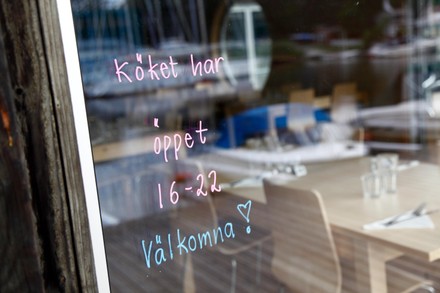 Köket har
öppet
16-22
Välkomna!